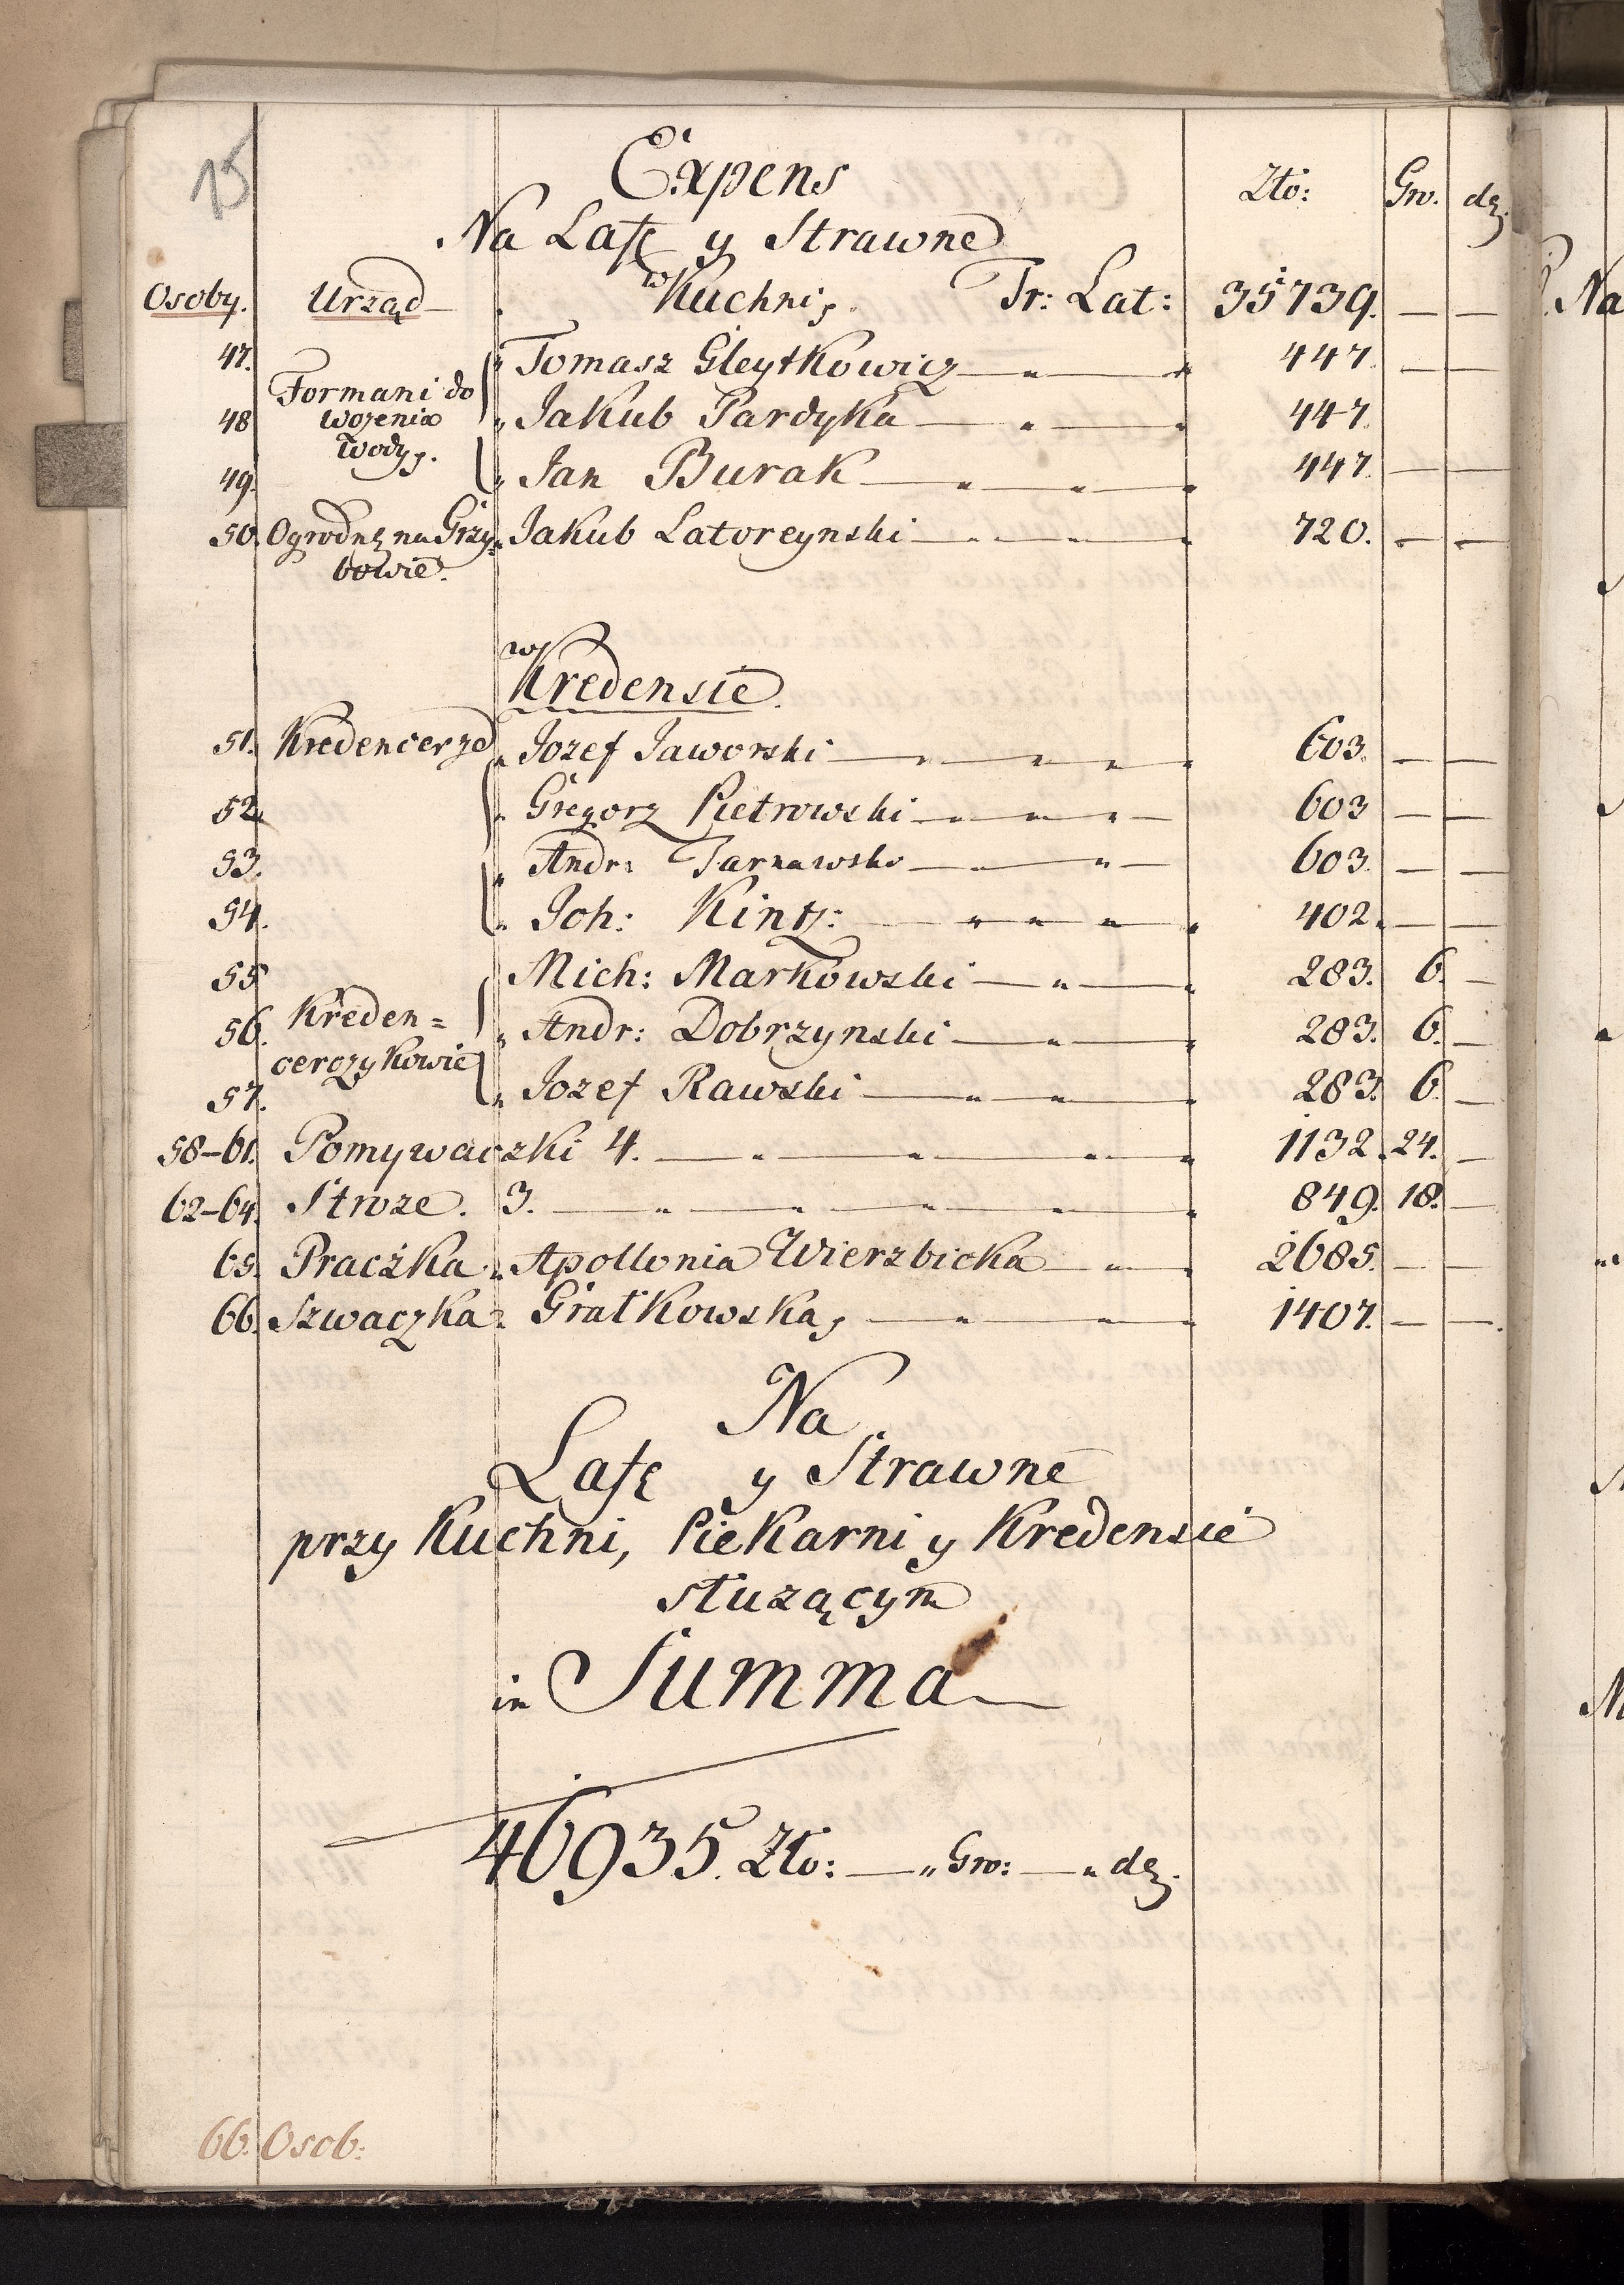 15
Expens Zło: Gro. dz.
Na Lafę y Strawne
Osoby. Urząd w Kuchni, Tr: Lat: 35739. — —
47. Tomasz Gleytkowicz 447. — —
Formani do
48 wożenia Jakub Pardyka 447.
wody,.
49. Jan Burak 447. — —
50. Ogrodnz. na Grzy- Jakub Latoreynski 720. — —
bowie.
w
Kredensie.
51. Kredencerze Jozef Jaworski 603. — —
52. Gregorz Pietrowski 603 — —
53. Andr: Tarnawski 603. — —
54. Joh: Kintz: 402. — —
55 Mich: Markowski 283. 6. —
56. Kreden= Andr: Dobrzynski 283. 6. —
cerczykowie
57. Jozef Rawski 283. 6. —
58–61. Pomywaczki 4. 1132. 24. —
62–64. Stroze. 3. 849. 18. —
65. Praczka Apollonia Wierzbicka 2685. — —
66. Szwaczka Gratkowska, 1407. — —
Na
Lafę y Strawne
przy Kuchni, Piekarni y Kredensie
słuzącym
in Summa
46935. Zło: — „ Gro: — „ dz.
66. Osob: